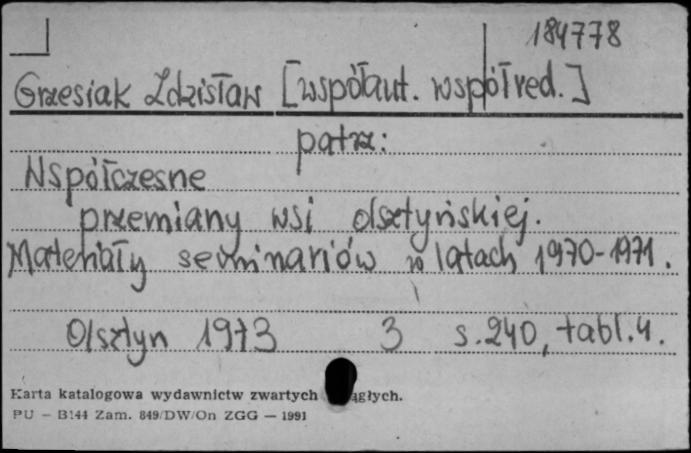 184778
Grzesiak Zdzisław [współaut. współred.]
patrz:
Współczesne
przemiany wsi olsztyńskiej.
Materiały seminariów w latach 1970-1971.
Olsztyn 1973 3 s.240, tabl.4.
Karta katalogowa wydawnictw zwartych ągłych.
PU - B144 Zam. 849/DW/On ZGG — 1991